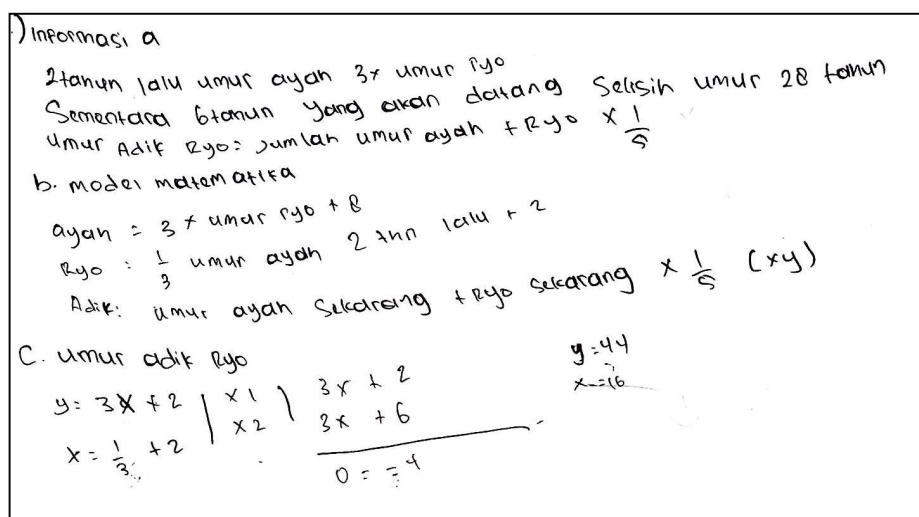 ) Informasi a
2 tahun lalu umur ayah 3x umur ryo
Sementara 6 tahun yang akan datang Selisih umur 28 tahun
Umur Adik Ryo = Jumlah umur ayah + Ryo x 1/5
b. model matematika
ayah = 3 x umur ryo + 8
Ryo : 1/3 umur ayah 2 thn lalu + 2
Adik: umur ayah Sekarang + Ryo sekarang x 1/5 (xy)
C. umur adik Ryo
y = 3x + 2 | x1 | 3x + 2
x = 1/3 + 2 | x2 | 3x + 6
0 = -4
y = 44
x = 16